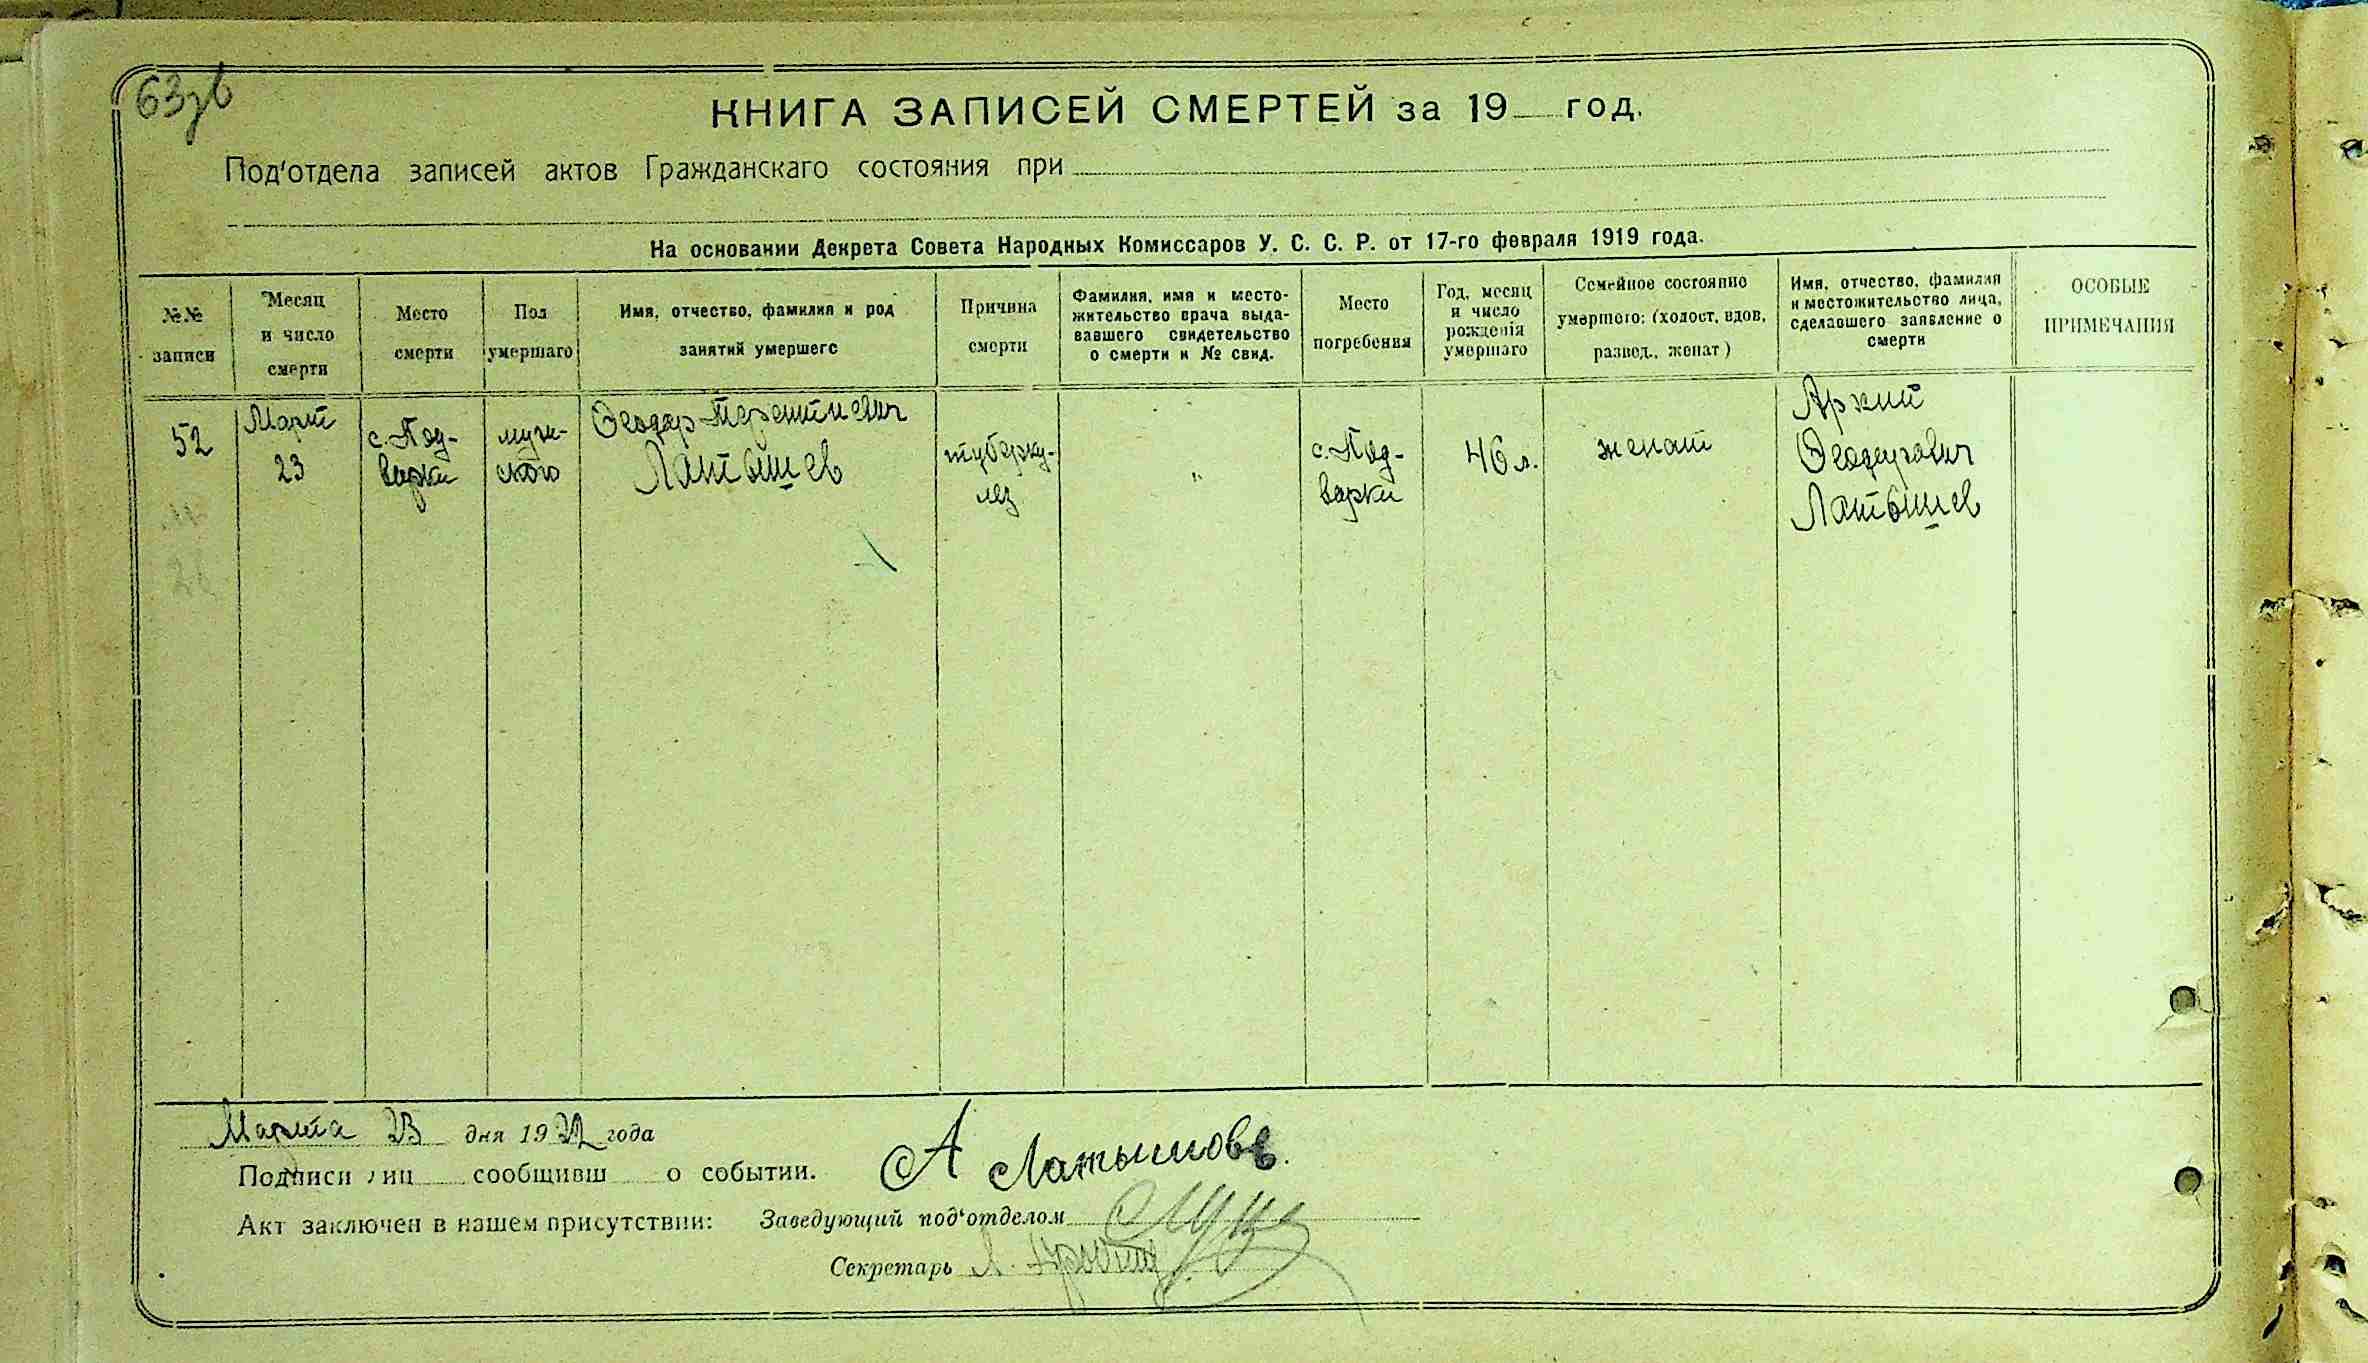 63зв
КНИГА ЗАПИСЕЙ СМЕРТЕЙ за 19 год.
Под'отдела записей актов Гражданскаго состояния при
На основании Декрета Совета Народных Комиссаров У. С. С. Р. от 17-го февраля 1919 года.
№№
записи
Месяц
и число
смерти
Место
смерти
Пол
умершаго
Имя, отчество, фамилия и род
занятий умершего
Причина
смерти
Фамилия, имя и место-
жительство врача выда-
вавшего свидетельство
о смерти и № свид.
Место
погребения
Год, месяц
и число
рождения
умершаго
Семейное состояние
умершого: (холост, вдов,
развод., женат)
Имя, отчество, фамилия
и местожительство лица,
сделавшего заявление о
смерти
ОСОБЫЕ
ПРИМЕЧАНИЯ
52
Март
23
с. Под-
варки
муж-
ского
Феодор Терентиевич
Латышев
туберку-
лез
"
с. Под-
варки
46 л.
женат
Феодорович
Латышев
Марта 23 дня 1922 года
Подписи лиц сообщивш о событии. А Латышовъ.
Акт заключен в нашем присутствии: Заведующий под'отделом
Секретарь